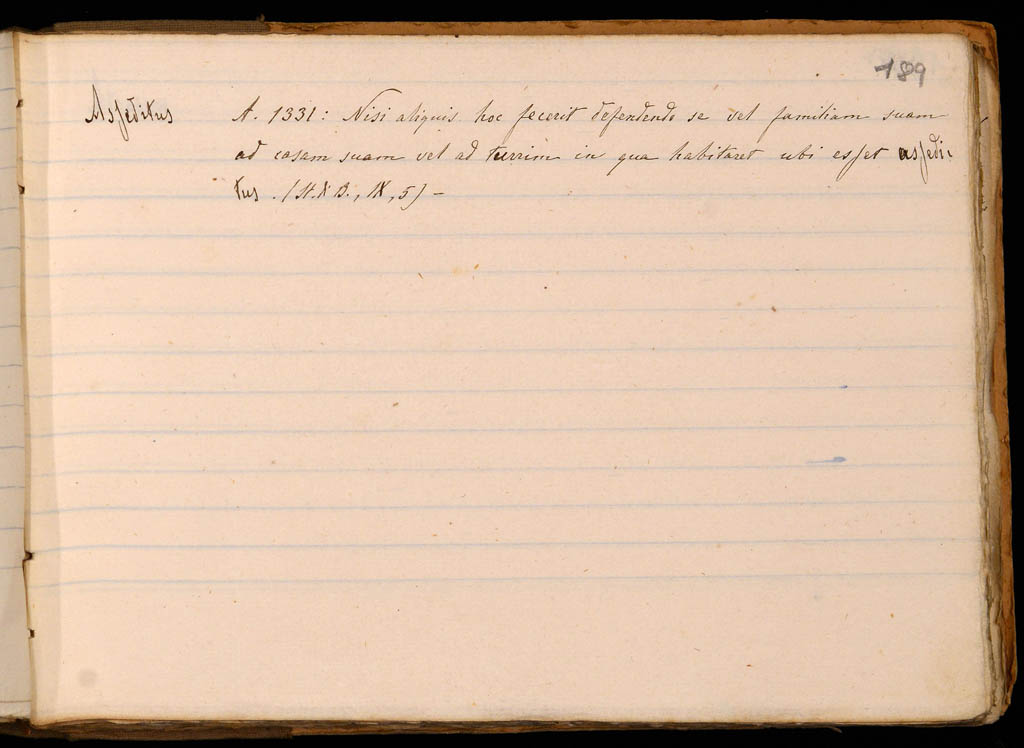 189
Asseditus A. 1331: Nisi aliquis hoc fecerit defendendo se vel familiam suam
ad casam suam vel ad turrim in qua habitaret ubi esset assedi-
tus. (St. di B., IX, 5) -